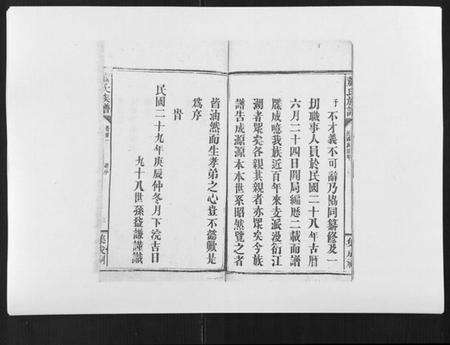 于不才義不可辭乃協同纂修及一
切職事人員於民國二十八年古曆
六月二十四日開局編歷二載而譜
成噫我族近百年來支派漫衍江
湖者眾矣各親其親者亦眾矣今族
譜告成源源本本世系昭然覽之者
油然而生孝弟之心豈不懿歟是
為序
民國二十九年庚辰仲冬月下浣吉日
九十八世孫
謙謹識
氏族譜